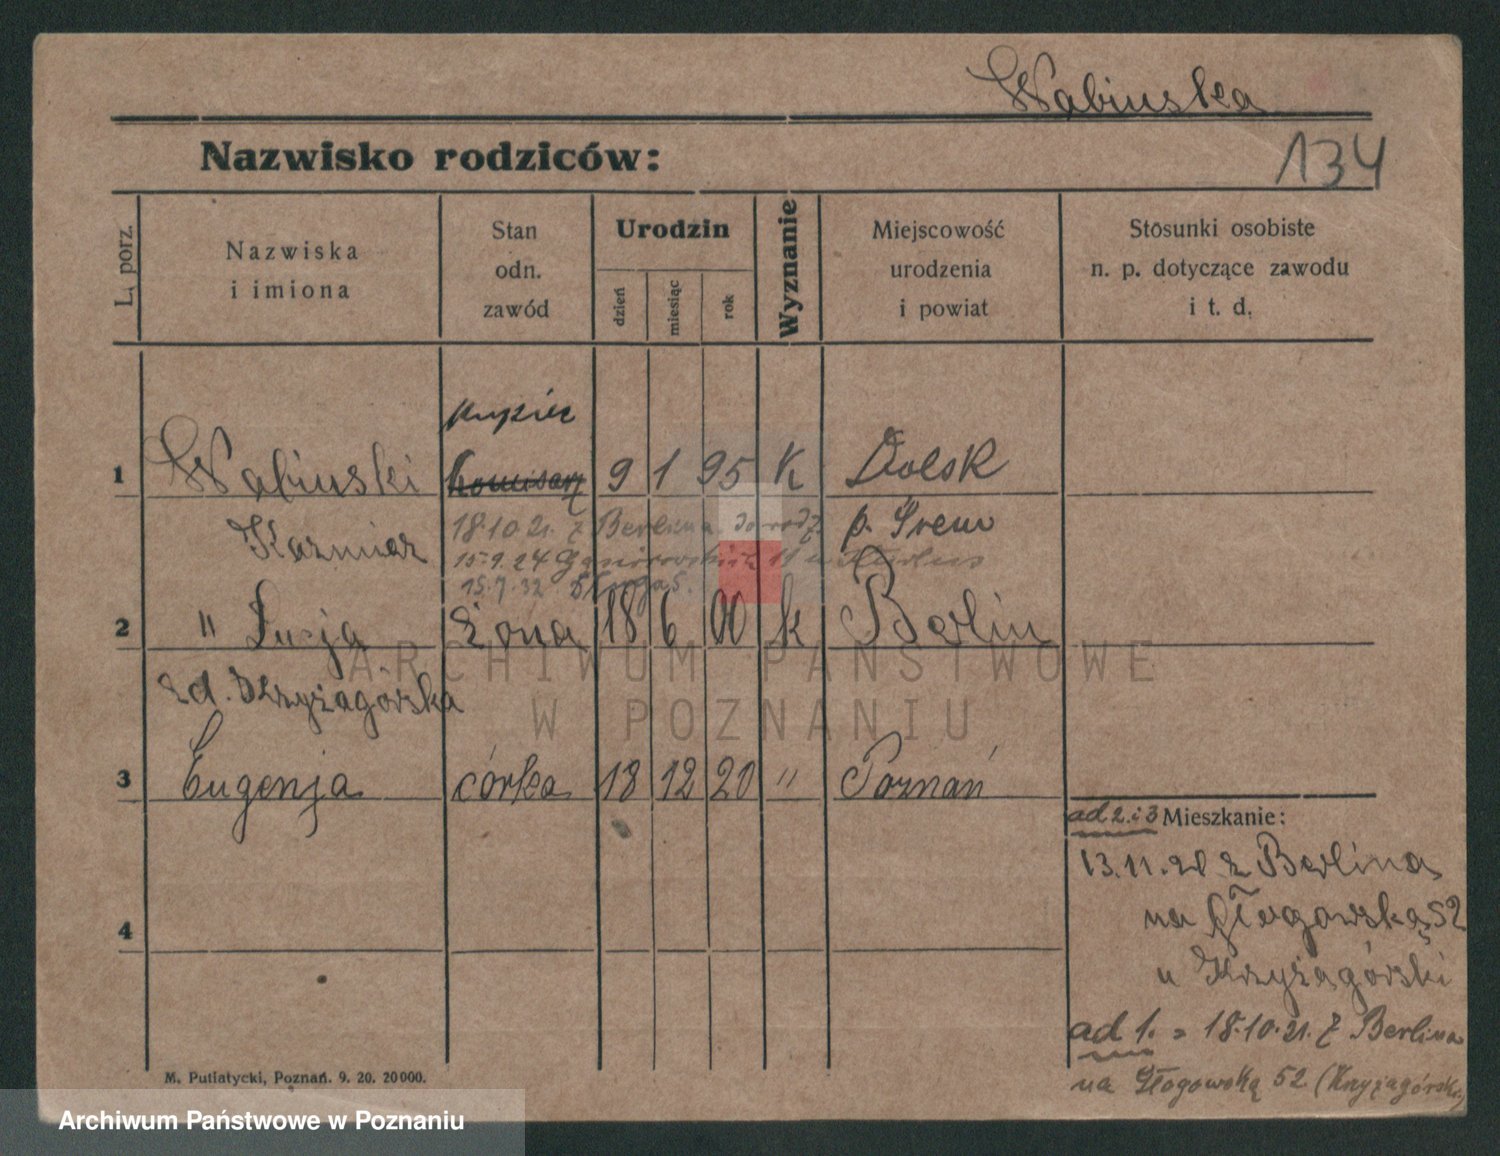 Wabinska
Nazwisko rodziców:
134
L. porz.
Nazwiska
i imiona
Stan
odn.
zawód
Urodzin
dzień
miesiąc
rok
Wyznanie
Miejscowość
urodzenia
i powiat
Stosunki osobiste
n. p. dotyczące zawodu
i t. d.
kupiec
1 Wabinski komisarz 9 1 95 K Dolsk
Kazmierz 18.10.21. z Berlina do rodz. p. Śrem
15.9.24
15.7.32 Długa 5.
2 " Lucja żona 18 6 00 k Berlin
zd. Krzyżagórska
3 Eugenja córka 18 12 20 " Poznań
ad 2. i 3 Mieszkanie:
13.11.20 z Berlina
na Głogowską 52
4
u Krzyżagórski
ad 1. = 18.10.21. z Berlina
na Głogowską 52 (Krzyżagórski)
M. Putiatycki, Poznań. 9. 20. 20000.
ARCHIWUM PAŃSTWOWE
W POZNANIU
Archiwum Państwowe w Poznaniu